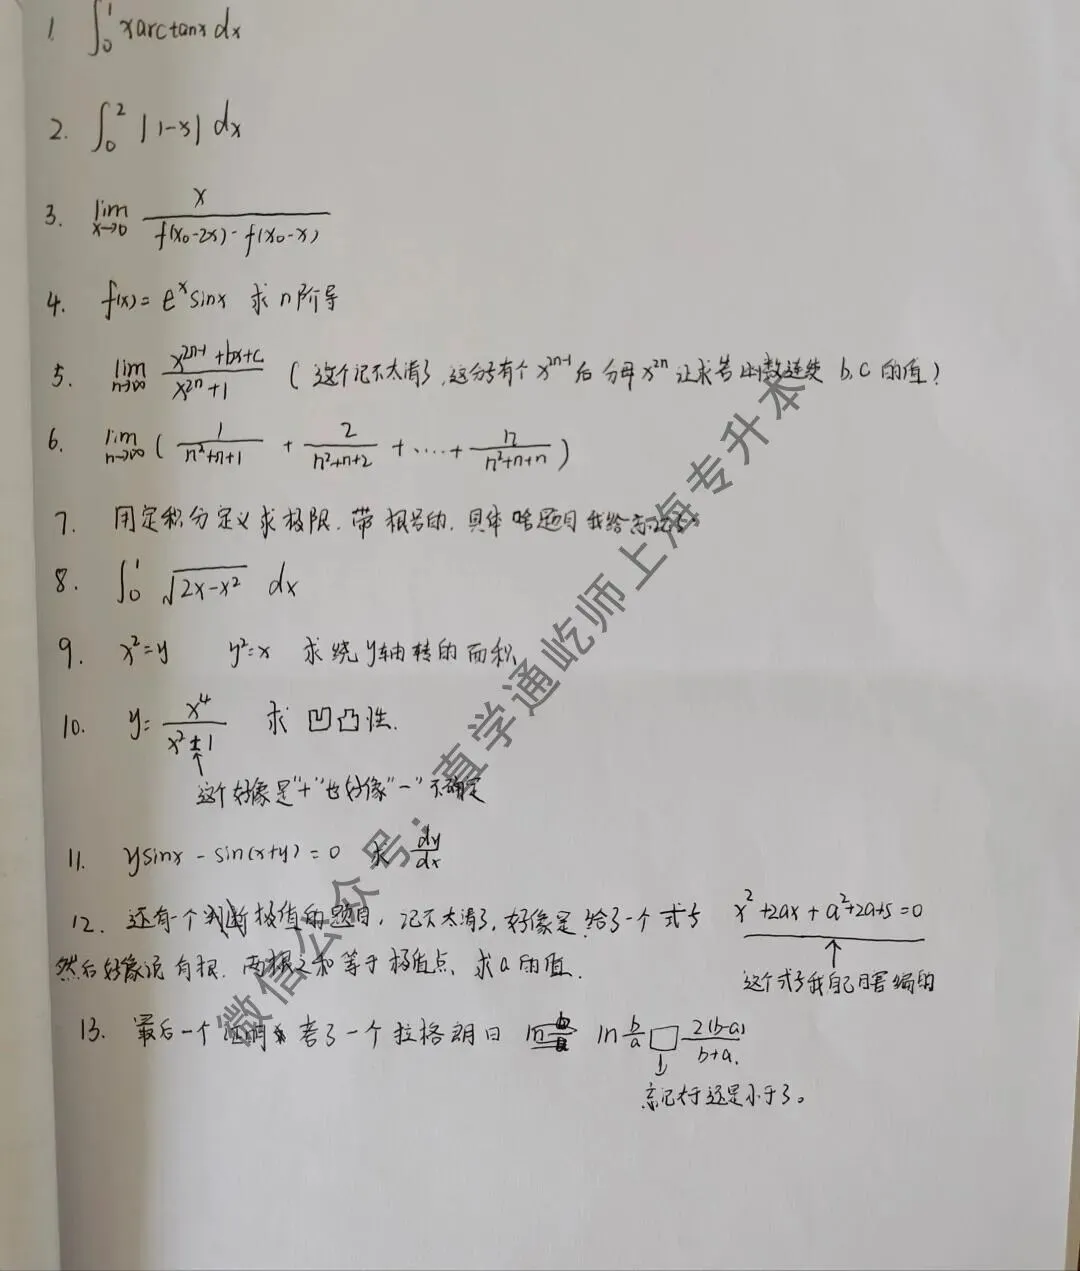 1. ∫₀¹ xarctanx dx
2. ∫₀² |1-x| dx
3. lim x→0 x / f(x₀-2x) - f(x₀-x)
4. f(x) = eˣsinx 求n阶导
5. lim n→∞ x²ⁿ⁻¹+bx+c / x²ⁿ+1 (这个记不太清了,这分子有个x²ⁿ⁻¹后分母x²ⁿ让求若函数连续 b,c的值)
6. lim n→∞ ( 1/n²+n+1 + 2/n²+n+2 + ····+ n/n²+n+n )
7. 用定积分定义求极限.带根号的,具体啥题目我给忘记了
8. ∫₀¹ √2x-x² dx
9. x²=y y²=x 求绕y轴转的面积
10. y= x⁴ / x²±1 求凹凸性.
这个好像是"+"也好像"-"不确定
11. ysinx - sin(x+y) = 0 求 dy/dx
12. 还有一个判断极值的题目,记不太清了,好像是给了一个式子 x²+2ax+a²+2a+5=0
然后好像说有根.两根之和等于极值点、求a的值.
这个式子我自己瞎编的
13. 最后一个证明 考了一个拉格朗日 ln b/a □ 2(b-a) / b+a.
忘记大于还是小于了。
微信公众号:直学通屹师上海专升本